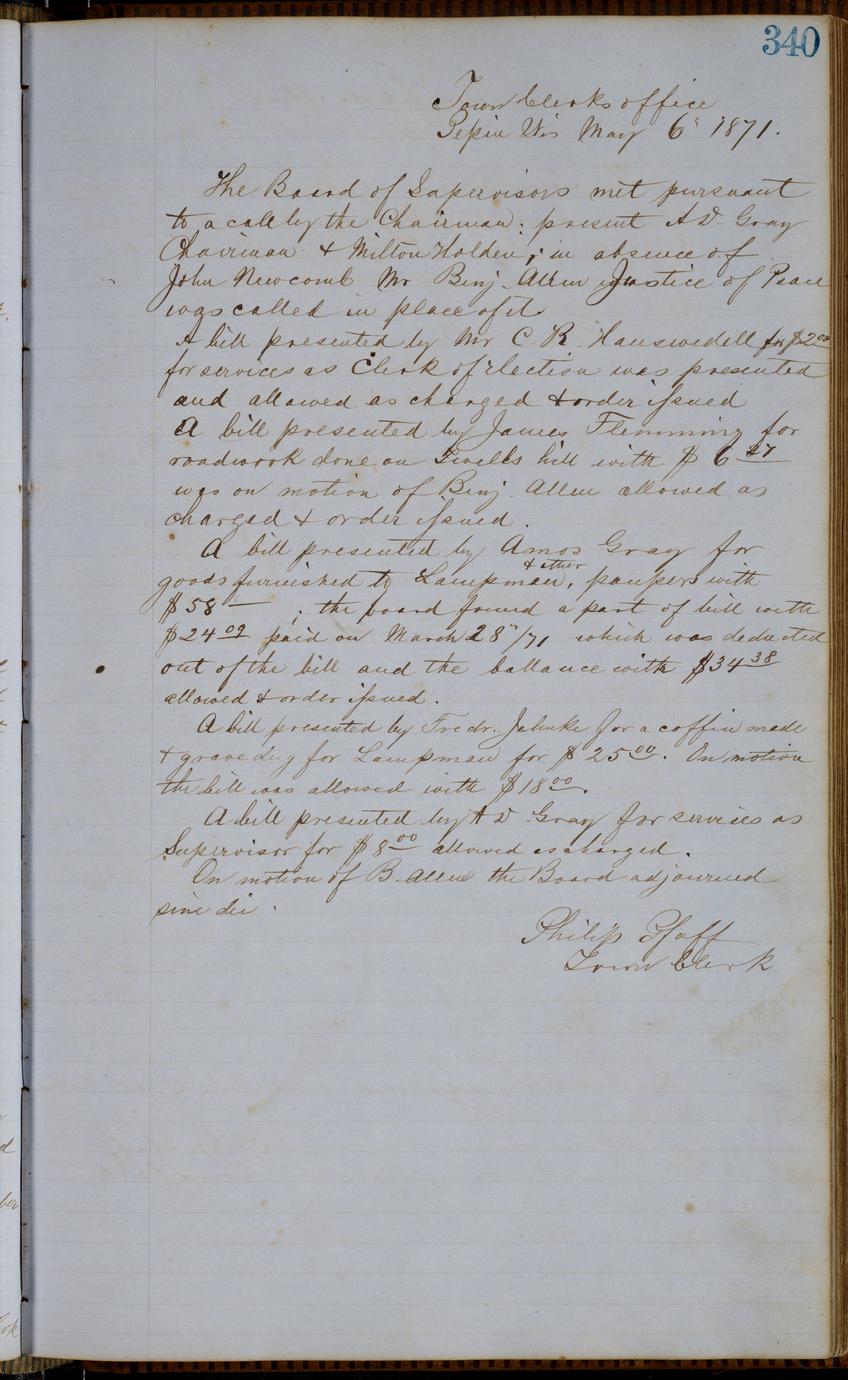 340
Town Clerks office
Pepin Wis May 6" 1871.
The Board of Supervisors met pursuant
to a call by the Chairman; present A D Gray
Chairman & Milton Holden; in absence of
John Newcomb Mr Benj. Allen Justice of Peace
was called in place of it
A bill presented by Mr C. R. Hauswedell for $2.00
for services as Clerk of Election was presented
and allowed as charged & order issued
A bill presented by James Flemming for
roadwork done on hill with $ 6 27
was on motion of Benj. Allen allowed as
charged & order issued.
A bill presented by Amos Gray for
& other
goods furnished to Lampman, paupers with
$58 — ; the board found a part of bill with
$24 02 paid on March 28"/71 which was deducted
out of the bill and the ballance with $34 38
allowed & order issued.
A bill presented by Fredr. Jahnke for a coffin made
& grave dug for Lampman for $ 25 00. On motion
the bill was allowed with $18 00.
A bill presented by A D Gray for services as
Supervisor for $8 00 allowed as charged.
On motion of B. Allen the Board adjourned
sine die.
Philip Pfaff
Town Clerk